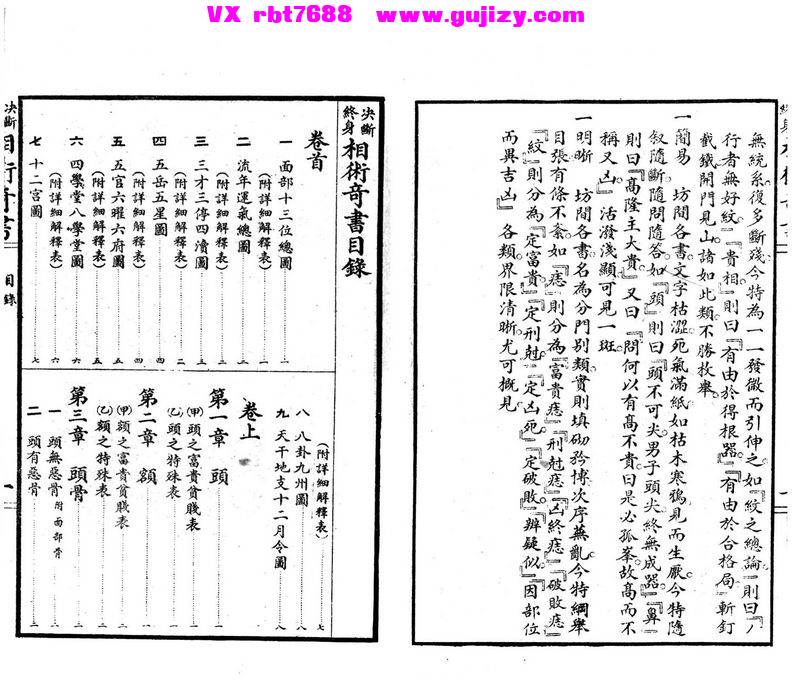 VX rbt7688 www.gujizy.com
無統系復多斷殘今特為一一發微而引伸之如『紋之總論』則曰『八
行者無好紋』『貴相』則曰『有由於得根器』『有由於合格局』斬釘
截鐵開門見山諸如此類不勝枚舉
一簡易 坊間各書文字枯澀死氣滿紙如枯木寒鴉見而生厭今特隨
叙隨斷隨問隨答如『頭』則曰『頭不可尖男子頭尖終無成器』『鼻』
則曰『高隆主大貴』又曰『問何以有高不貴曰是必孤峯故高而不
稱又凶』活潑淺顯可見一斑
一明晰 坊間各書名為分門別類實則填砌矜博次序蕪亂今特綱舉
目張有條不紊如『痣』則分為『富貴痣』『刑尅痣』『凶終痣』『破敗痣』
『紋』則分為『定富貴』『定刑尅』『定凶死』『定破敗』『辨疑似』『因部位
而異吉凶』各類界限清晰尤可概見
決斷終身相術奇書目錄
卷首
一 面部十三位總圖 一
(附詳細解釋表) 一
二 流年運氣總圖 二
(附詳細解釋表) 二
三 三才三停四瀆圖 三
(附詳細解釋表) 三
四 五岳五星圖 四
(附詳細解釋表) 四
五 五官六曜六府圖 五
(附詳細解釋表) 五
六 四學堂八學堂圖 六
(附詳細解釋表) 六
七 十二宮圖 七
(附詳細解釋表) 七
八 八卦九州圖 八
九 天干地支十二月令圖 八
卷上
第一章 頭 一
(甲)頭之富貴貧賤表 一
(乙)頭之特殊表 一
第二章 額 一
(甲)額之富貴貧賤表
(乙)額之特殊表
第三章 頭骨 二
一 頭無惡骨 附面部骨 二
二 頭有惡骨 二
決斷
目錄
一